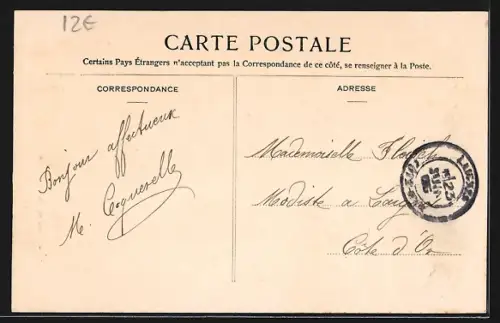 12€
CARTE POSTALE
Certains Pays Étrangers n'acceptant pas la Correspondance de ce côté, se renseigner à la Poste.
CORRESPONDANCE
ADRESSE
Bonjour affectueux
M. Coquerelle
Mademoiselle
Modiste a
Côte d'Or